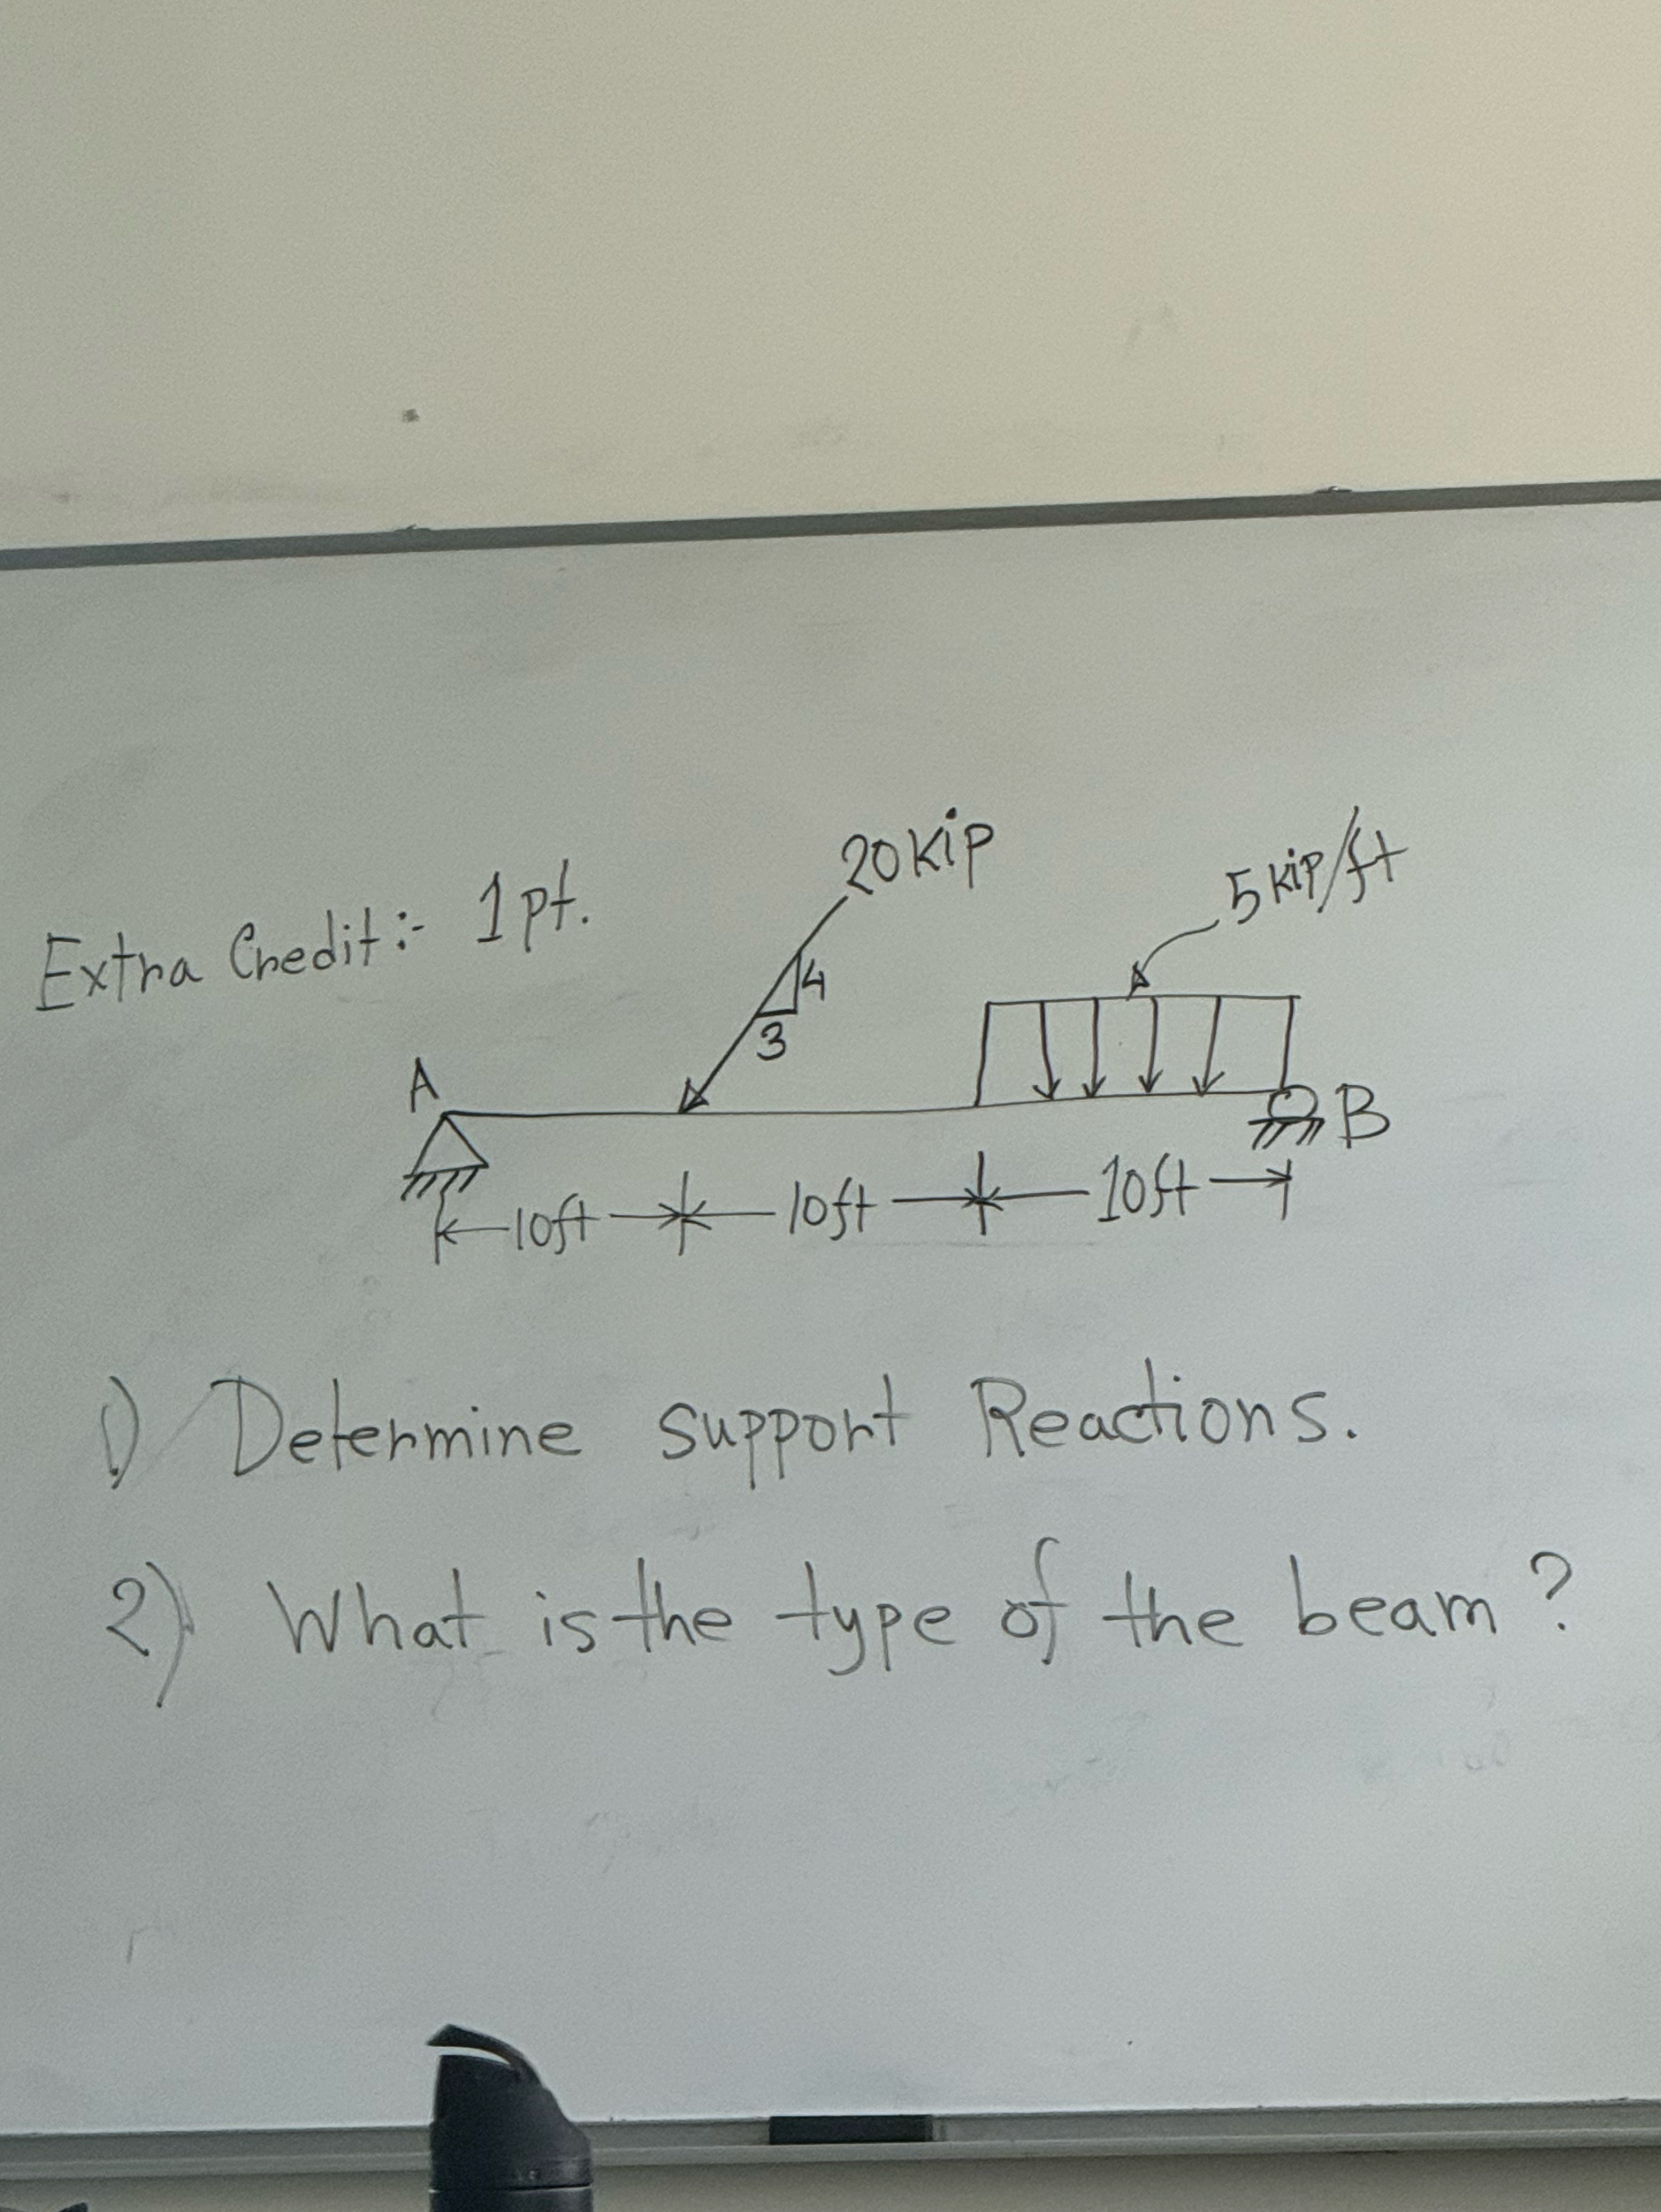 Extra Credit:- 1pt.
20 kip
5 kip/ft
4
3
A
B
10ft
10ft
10ft
1) Determine support Reactions.
2) What is the type of the beam?